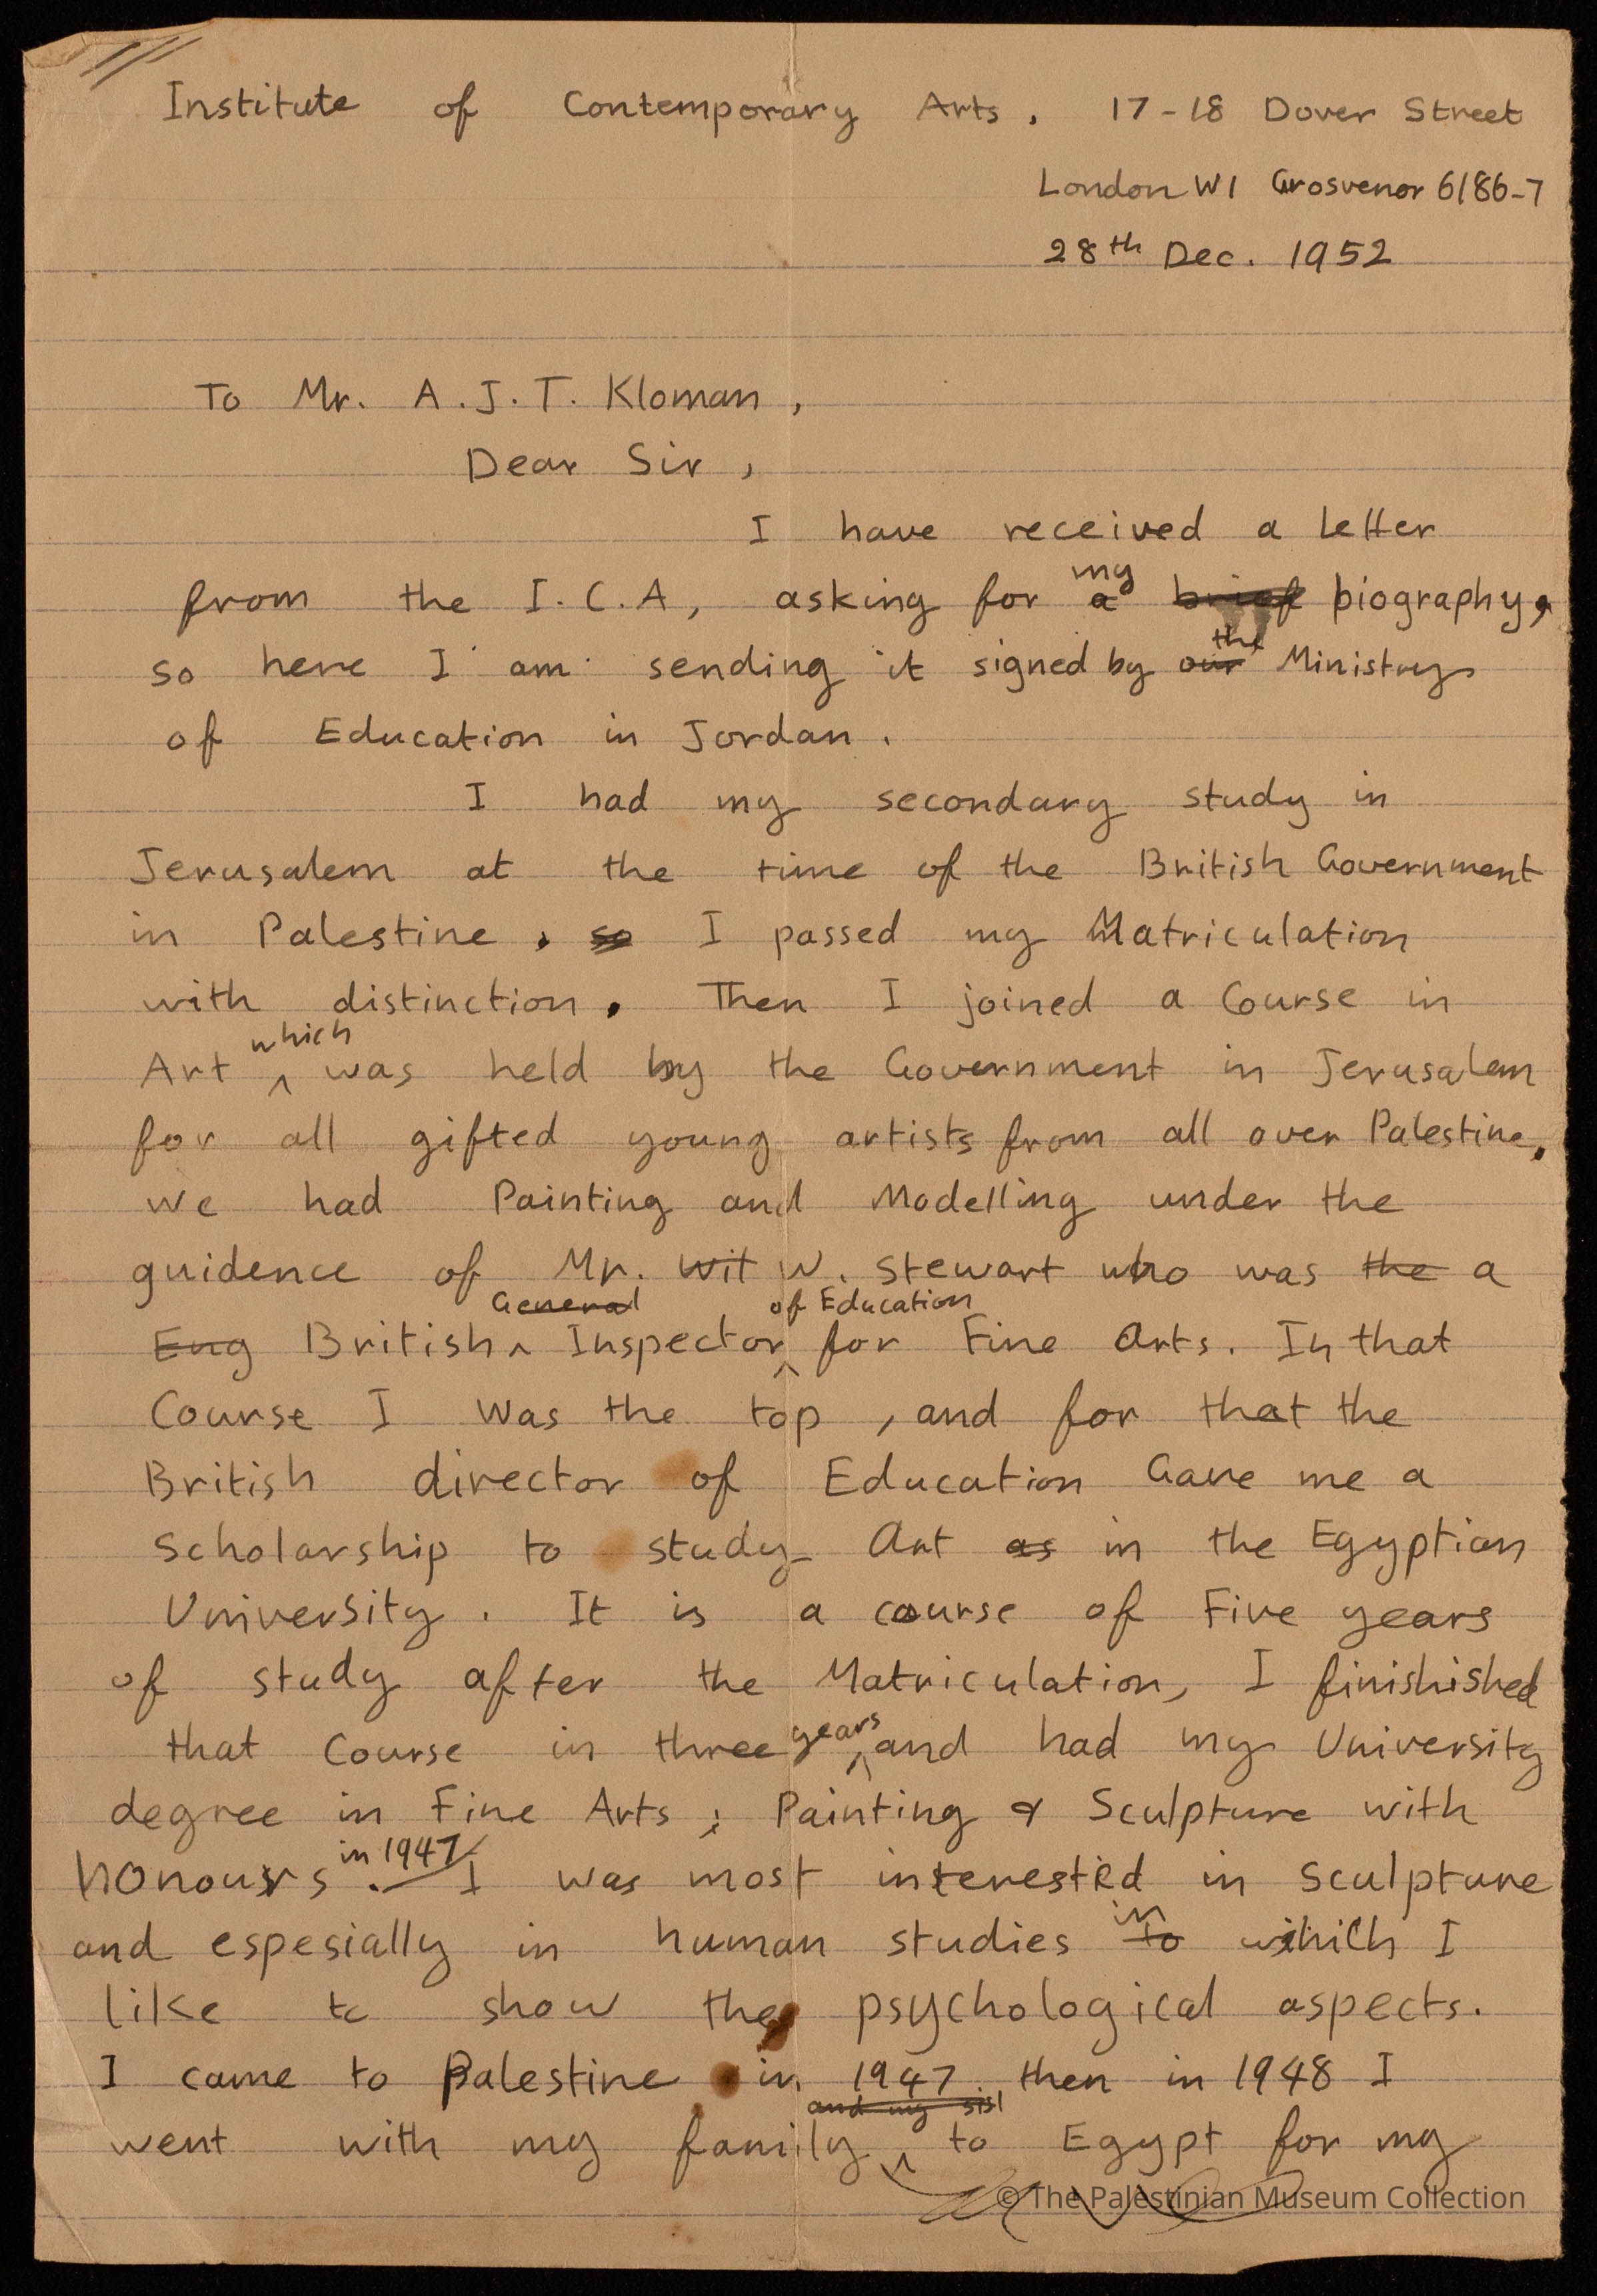 Institute of Contemporary Arts. 17-18 Dover Street
London W1 Grosvenor 6186-7
28th Dec. 1952
To Mr. A.J.T. Kloman,
Dear Sir,
I have received a letter
from the I.C.A, asking for a my brief biography,
so here I am sending it signed by our the Ministry
of Education in Jordan.
I had my secondary study in
Jerusalem at the time of the British Government
in Palestine, so I passed my Matriculation
with distinction. Then I joined a Course in
Art which was held by the Government in Jerusalem
for all gifted young artists from all over Palestine.
we had Painting and Modelling under the
guidence of Mr. Wit W. Stewart who was the a
Eng British General Inspector of Education for Fine Arts. In that
Course I was the top, and for that the
British director of Education Gave me a
Scholarship to study Art as in the Egyptian
University. It is a course of Five years
of study after the Matriculation, I finishished
that Course in three years and had my University
degree in Fine Arts; Painting & Sculpture with
honours in 1947. I was most interested in Sculpture
and espesially in human studies to in which I
like to show the psychological aspects.
I came to Palestine in 1947 then in 1948 I
went with my family and my sis to Egypt for my
© The Palestinian Museum Collection